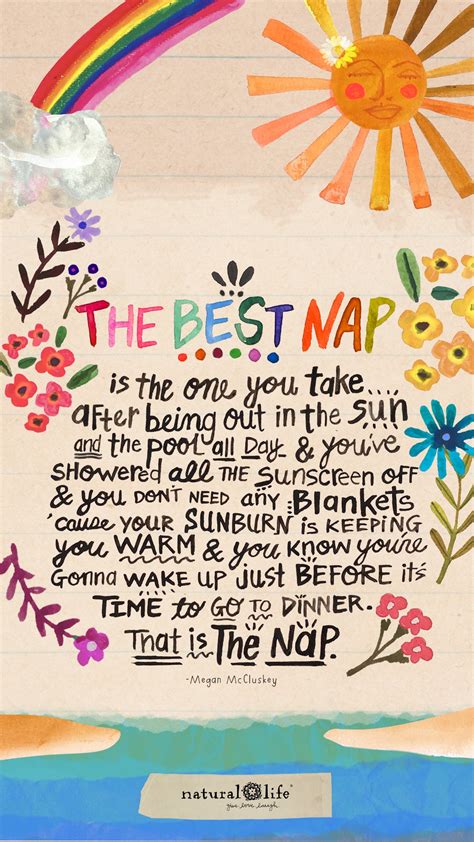 THE BEST NAP
is the one you take...
after being out in the sun
and the pool all Day & you've
showered all THE Sunscreen off
& you DON'T NEED any Blankets
'cause your SUNBURN is KEEPING
you WARM & you know you're
Gonna WAKE UP just BEFORE it's
TIME to GO TO DINNER.
That is The NAP.
-Megan McCluskey
natural life®
give love laugh